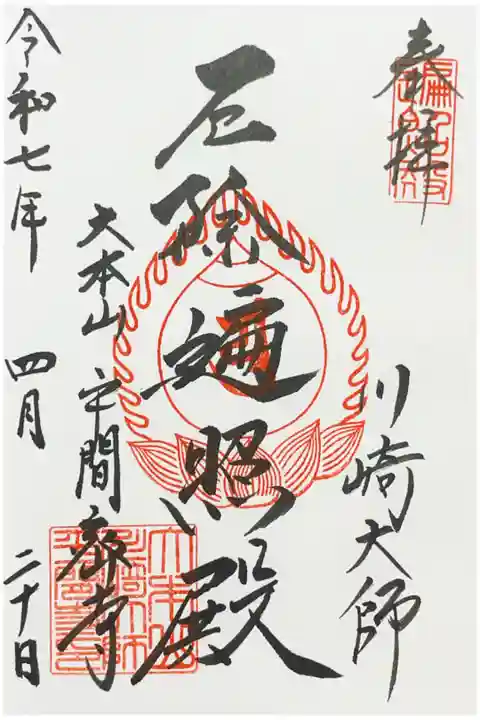 奉拝
川崎大師
厄除遍照殿
大本山 平間寺
令和七年 四月 二十日